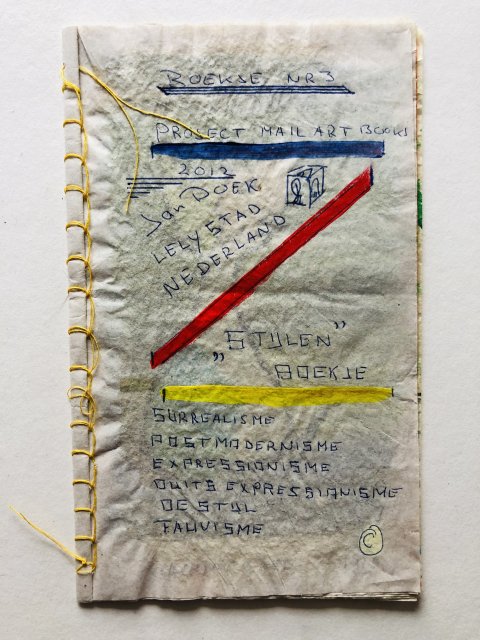 BOEKJE NR 3
PROJECT MAIL ART BOOKS
2012
Jan DOEK
LELYSTAD
NEDERLAND
"STIJLEN"
BOEKJE
SURREALISME
POSTMODERNISME
EXPRESSIONISME
DUITS EXPRESSIONISME
DE STIJL
FAUVISME
C